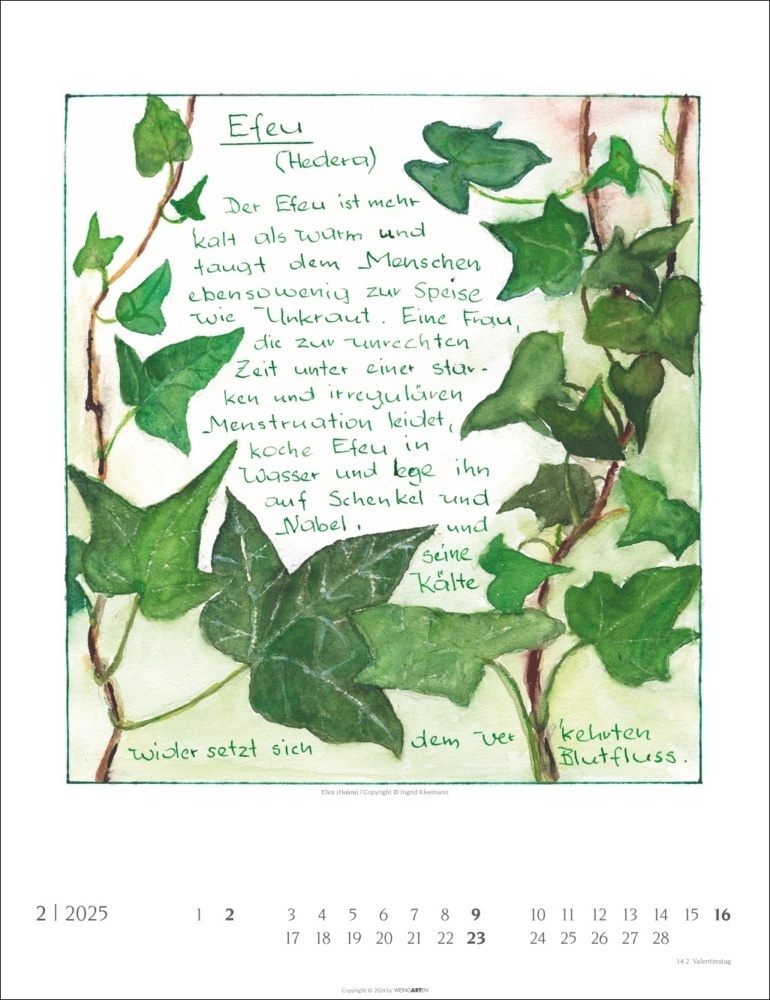 Efeu
(Hedera)
Der Efeu ist mehr
kalt als warm und
taugt dem Menschen
ebensowenig zur Speise
wie Unkraut. Eine Frau,
die zur unrechten
Zeit unter einer star-
ken und irregulären
Menstruation leidet,
koche Efeu in
Wasser und lege ihn
auf Schenkel und
Nabel. und
seine
Kälte
wider setzt sich dem ver kehrten
Blutfluss.
Efeu (Hedera) | Copyright © Ingrid Kleemann
2 | 2025 1 2 3 4 5 6 7 8 9 10 11 12 13 14 15 16
17 18 19 20 21 22 23 24 25 26 27 28
14.2. Valentinstag
Copyright © 2024 by WEINGARTEN